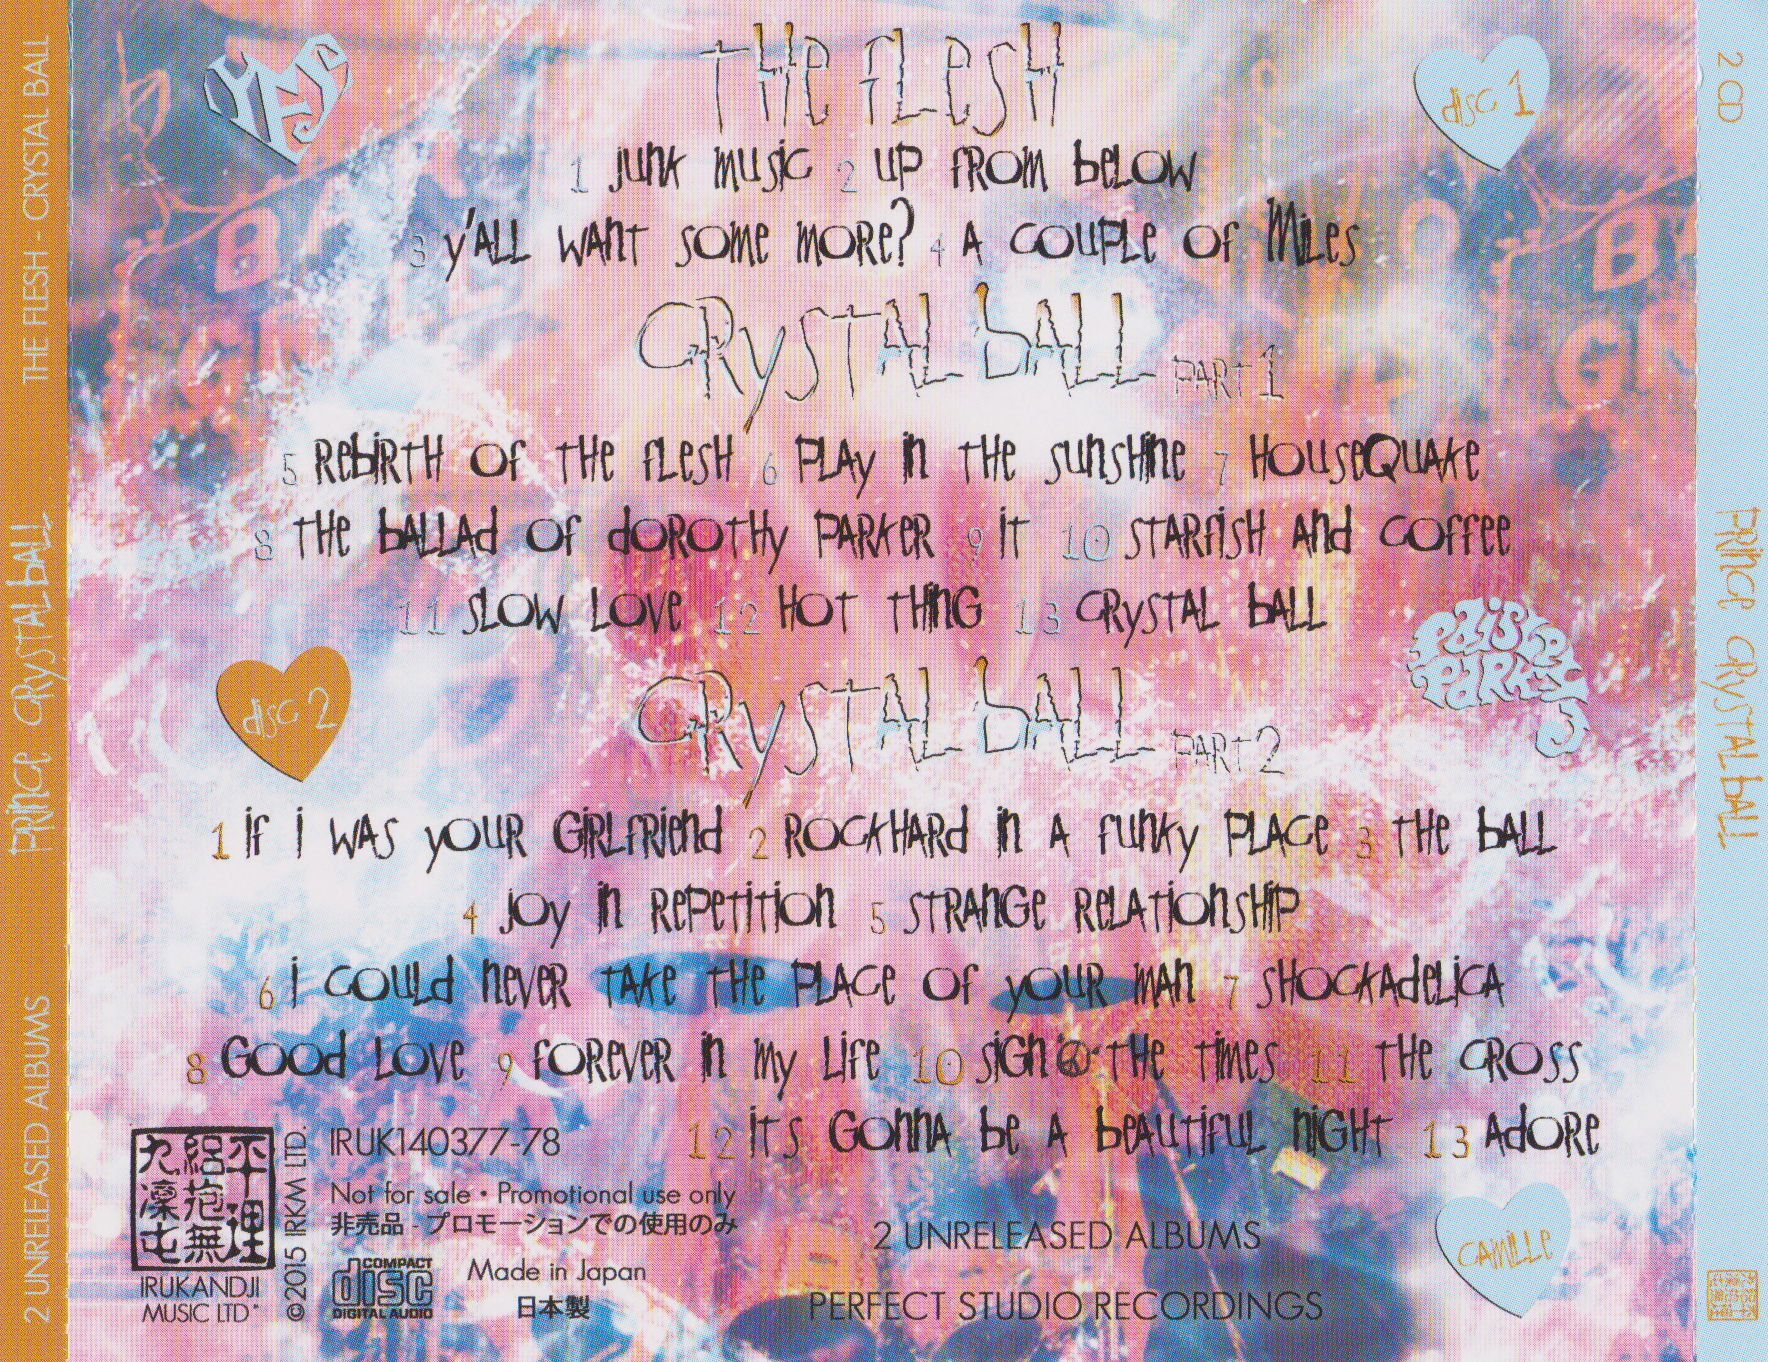 THE FLESH - CRYSTAL BALL
PRINCE CRYSTAL BALL
2 UNRELEASED ALBUMS
YES
THE FLESH
disc 1
1 junk music 2 up from below
3 y'all want some more? 4 a couple of miles
CRYSTAL BALL PART 1
5 Rebirth of the flesh 6 Play in the sunshine 7 Housequake
8 The ballad of Dorothy Parker 9 it 10 Starfish and coffee
11 Slow love 12 Hot thing 13 Crystal ball
paisley park
disc 2
CRYSTAL BALL PART 2
1 if i was your girlfriend 2 Rockhard in a funky place 3 The ball
4 joy in repetition 5 Strange relationship
6 i could never take the place of your man 7 Shockadelica
8 Good love 9 forever in my life 10 Sign☮the times 11 The cross
12 it's gonna be a beautiful night 13 Adore
IRUKANDJI
MUSIC LTD
©2015 IRKM LTD.
IRUK140377-78
Not for sale • Promotional use only
非売品 - プロモーションでの使用のみ
COMPACT
disc
DIGITAL AUDIO
Made in Japan
日本製
2 UNRELEASED ALBUMS
PERFECT STUDIO RECORDINGS
CAMILLE
2 CD
PRINCE CRYSTAL BALL